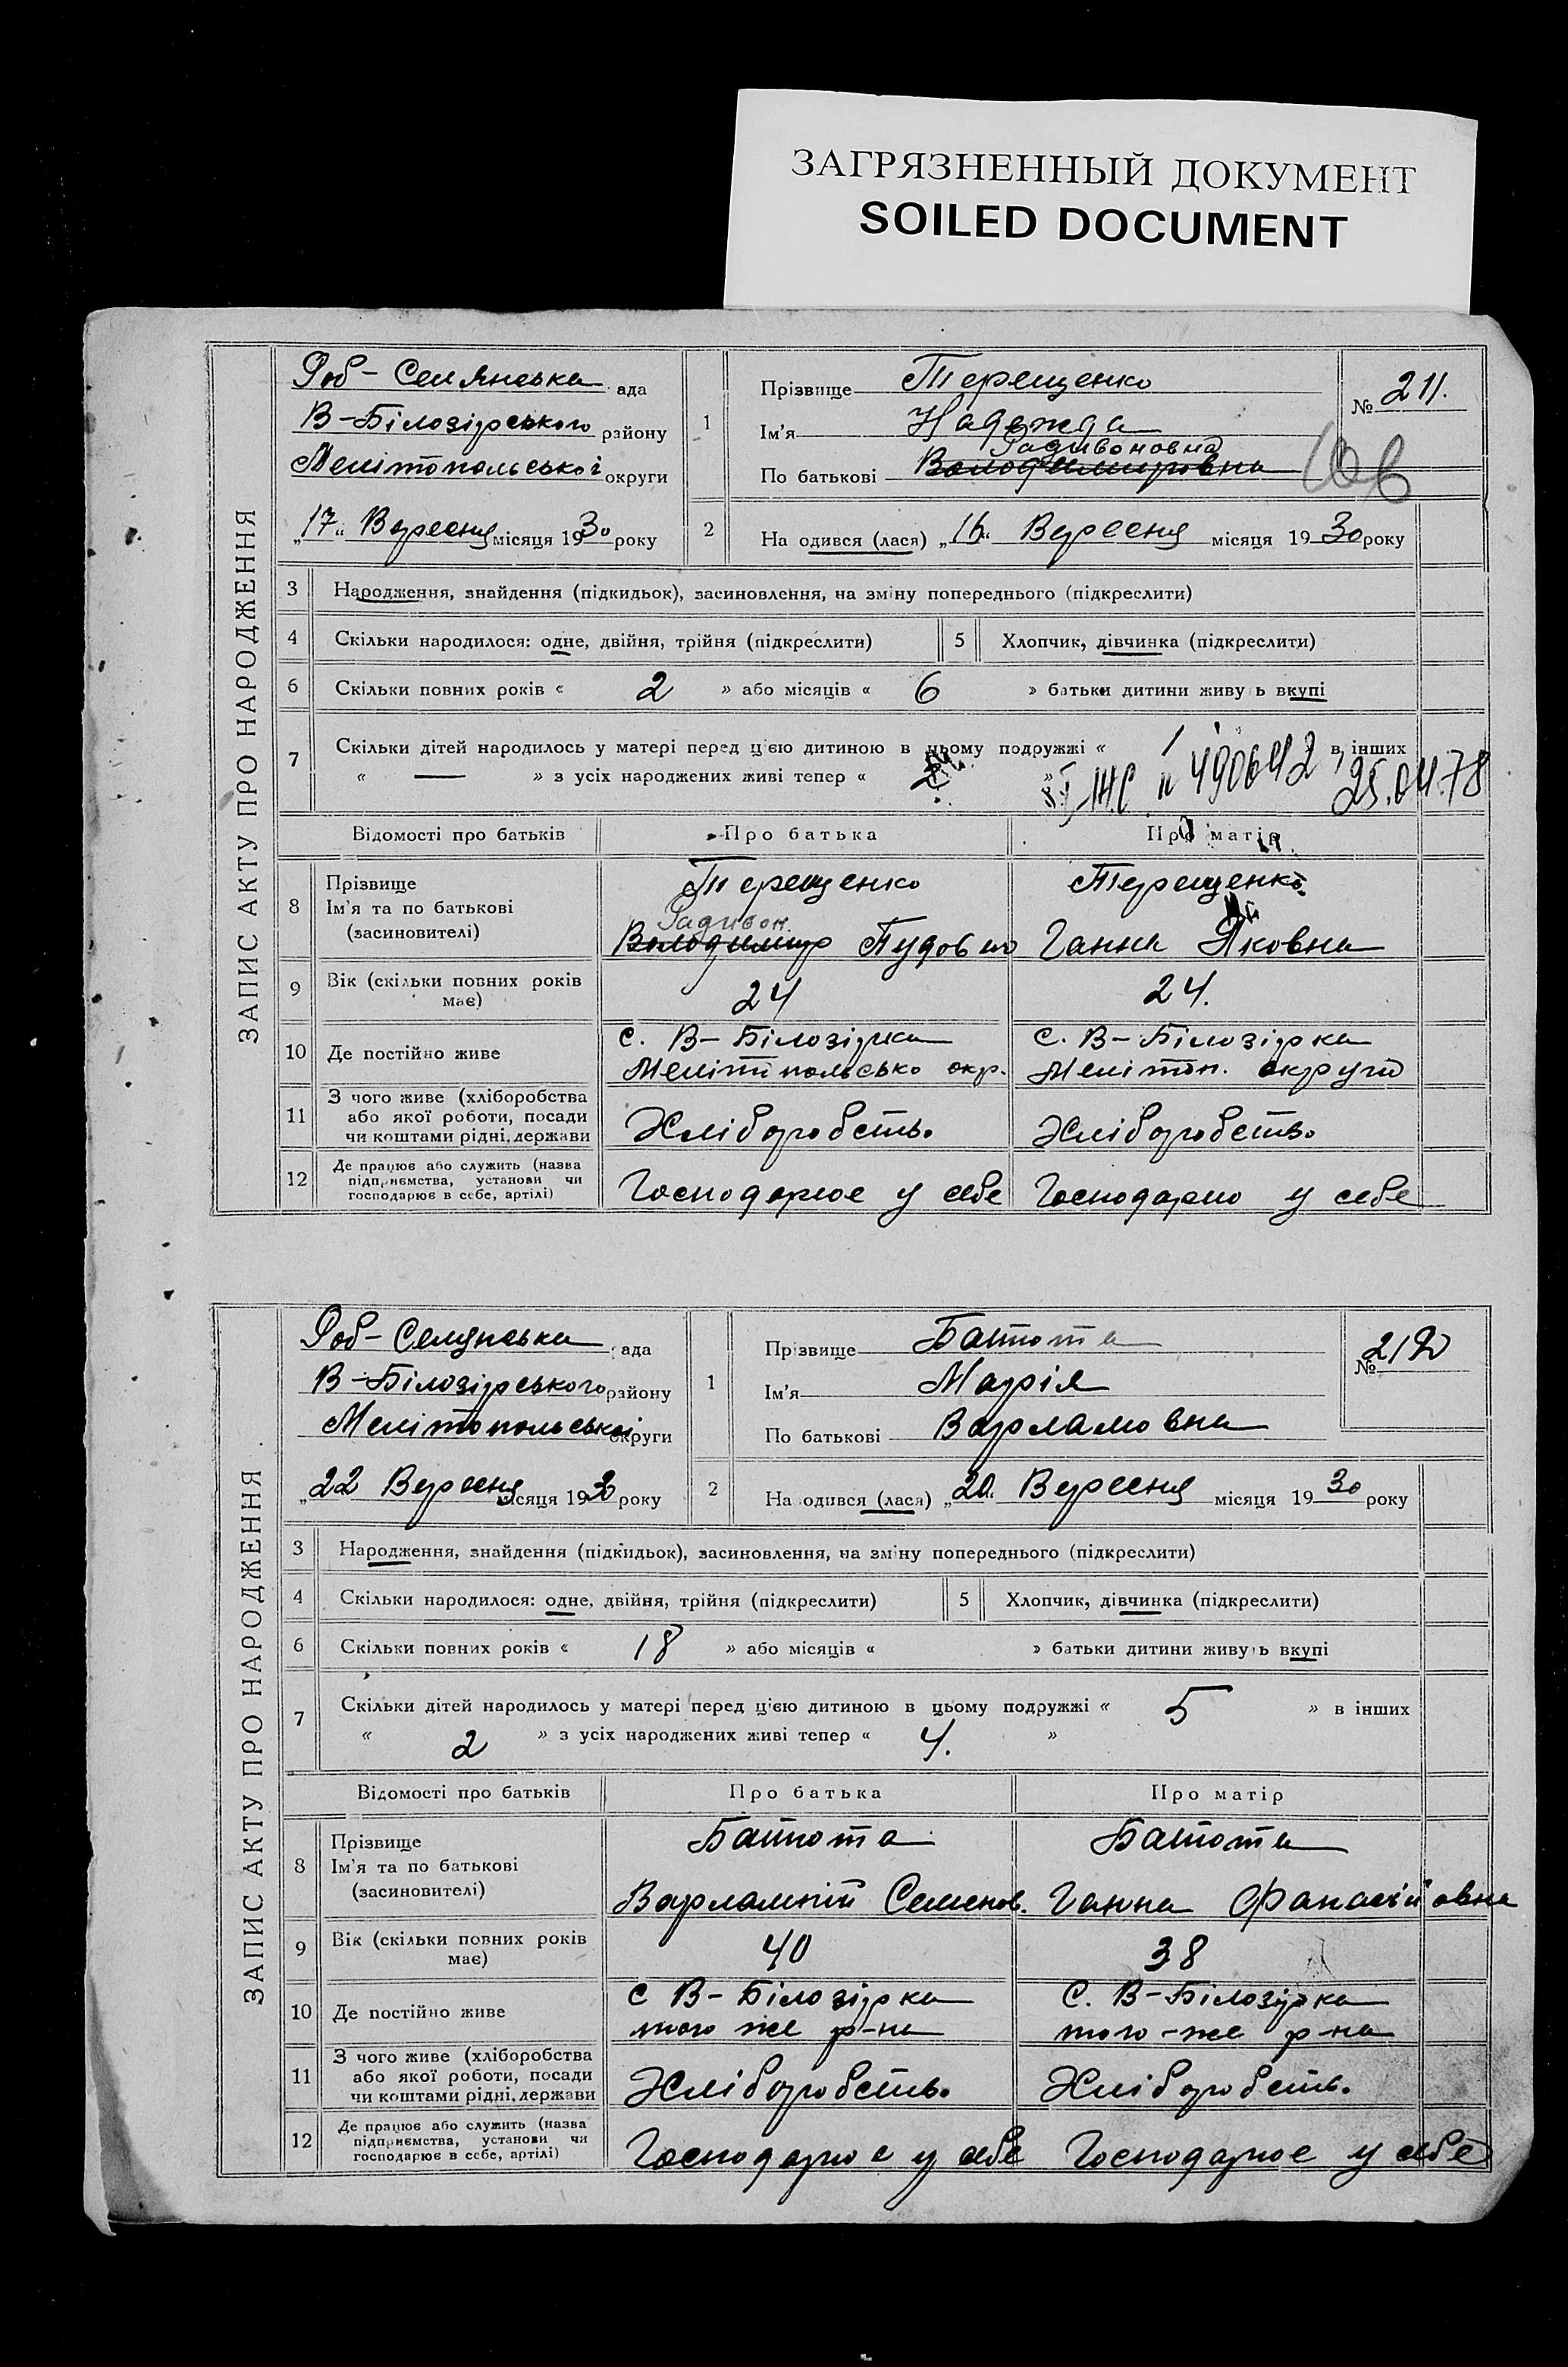 ЗАГРЯЗНЕННЫЙ ДОКУМЕНТ
SOILED DOCUMENT
ЗАПИС АКТУ ПРО НАРОДЖЕННЯ
Роб-Селянська ада
В-Білозірського району
Мелітопольської округи
„17“ Вересня місяця 1930 року
1
Прізвище Терещенко
Ім'я Надежда
Радивоновна
По батькові Володимировна
№ 211.
2
На одився (лася) „16“ Вересня місяця 1930 року
3 Народження, знайдення (підкидьок), засиновлення, на зміну попереднього (підкреслити)
4 Скільки народилося: одне, двійня, трійня (підкреслити) 5 Хлопчик, дівчинка (підкреслити)
6 Скільки повних років « 2 » або місяців « 6 » батьки дитини живу ь вкупі
7 Скільки дітей народилось у матері перед цією дитиною в цьому подружжі « 1 в інших
« — » з усіх народжених живі тепер «
490642 25.04.78
Відомості про батьків Про батька Про матір
8 Прізвище Терещенко Терещенко
Ім'я та по батькові Радивон.
(засиновителі) Володимир Пудов Ганна Яковна
9 Вік (скільки повних років має) 24 24.
10 Де постійно живе с. В-Білозірка с. В-Білозірка
Мелітопольсько окр. Мелітоп. округи
11 З чого живе (хліборобства
або якої роботи, посади
чи коштами рідні, держави Хліборобств. Хліборобств.
12 Де працює або служить (назва
підприємства, установи чи
господарює в себе, артілі) Господарює у себе Господарює у себе
ЗАПИС АКТУ ПРО НАРОДЖЕННЯ
Роб-Селянська ада
В-Білозірського району
Мелітопольської округи
„22 Вересня місяця 1930 року
1
Прізвище Батюта
Ім'я Марія
По батькові Варламовна
№ 212
2
На одився (лася) „20“ Вересня місяця 1930 року
3 Народження, знайдення (підкидьок), засиновлення, на зміну попереднього (підкреслити)
4 Скільки народилося: одне, двійня, трійня (підкреслити) 5 Хлопчик, дівчинка (підкреслити)
6 Скільки повних років « 18 » або місяців « » батьки дитини живу ь вкупі
7 Скільки дітей народилось у матері перед цією дитиною в цьому подружжі « 5 » в інших
« 2 » з усіх народжених живі тепер « 4. »
Відомості про батьків Про батька Про матір
8 Прізвище Батюта Батюта
Ім'я та по батькові
(засиновителі) Варламній Семенов. Ганна Фанасіївна
9 Вік (скільки повних років має) 40 38
10 Де постійно живе с В-Білозірка С. В-Білозірка
того же р-на того-же р-на
11 З чого живе (хліборобства
або якої роботи, посади
чи коштами рідні, держави Хліборобств. Хліборобств.
12 Де працює або служить (назва
підприємства, установи чи
господарює в себе, артілі) Господарює у себе Господарює у себе